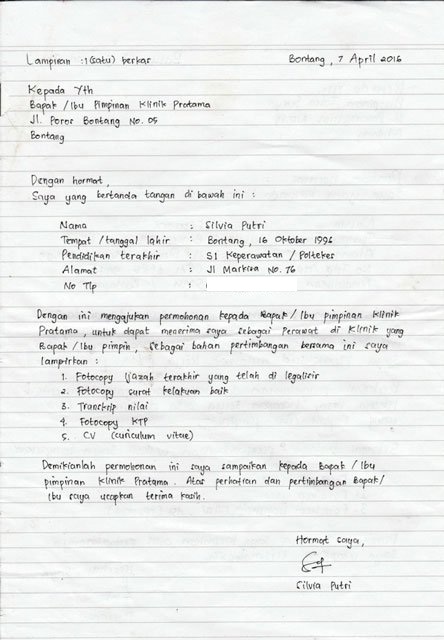 Lampiran : 1 (satu) berkas Bontang, 7 April 2016
Kepada Yth
Bapak / Ibu Pimpinan Klinik Pratama
Jl. Poros Bontang No. 05
Bontang
Dengan hormat,
Saya yang bertanda tangan di bawah ini :
Nama : Silvia Putri
Tempat / tanggal lahir : Bontang, 16 Oktober 1996
Pendidikan terakhir : S1 Keperawatan / Poltekes
Alamat : Jl Markisa No. 76
No Tlp :
Dengan ini mengajukan permohonan kepada Bapak / Ibu pimpinan Klinik
Pratama, untuk dapat menerima saya sebagai Perawat di Klinik yang
Bapak / Ibu pimpin, sebagai bahan pertimbangan bersama ini saya
lampirkan :
1. Fotocopy Ijazah terakhir yang telah di legalisir
2. Fotocopy surat kelakuan baik
3. Transkrip nilai
4. Fotocopy KTP
5. CV (curiculum vitae)
Demikianlah permohonan ini saya sampaikan kepada Bapak / Ibu
pimpinan Klinik Pratama. Atas perhatian dan pertimbangan Bapak /
Ibu saya ucapkan terima kasih.
Hormat saya,
Silvia Putri